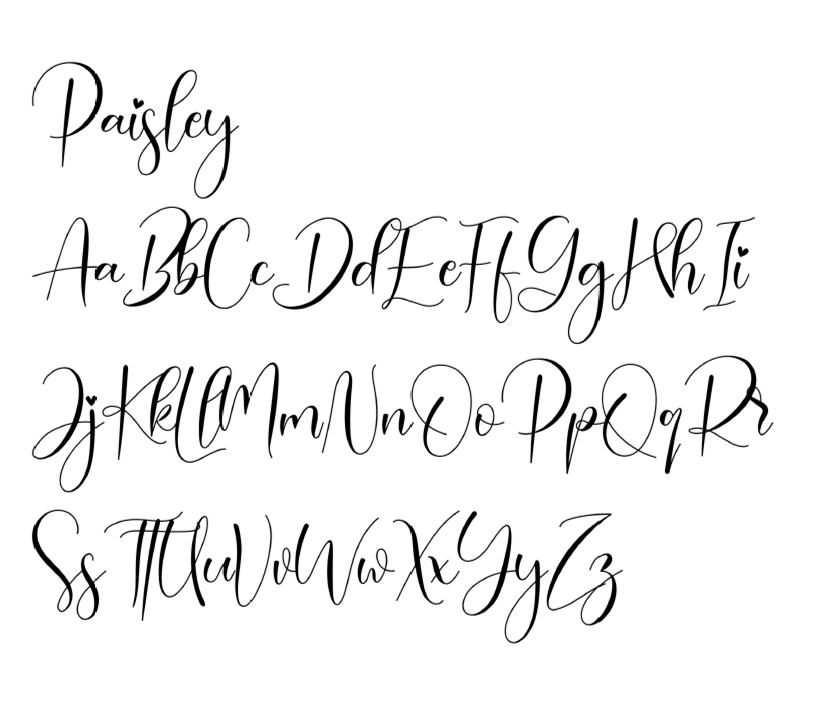 Paisley
AaBbCcDdEeFfGgHhIi
JjKkLlMmNnOoPpQqRr
SsTtUuVvWwXxYyZz